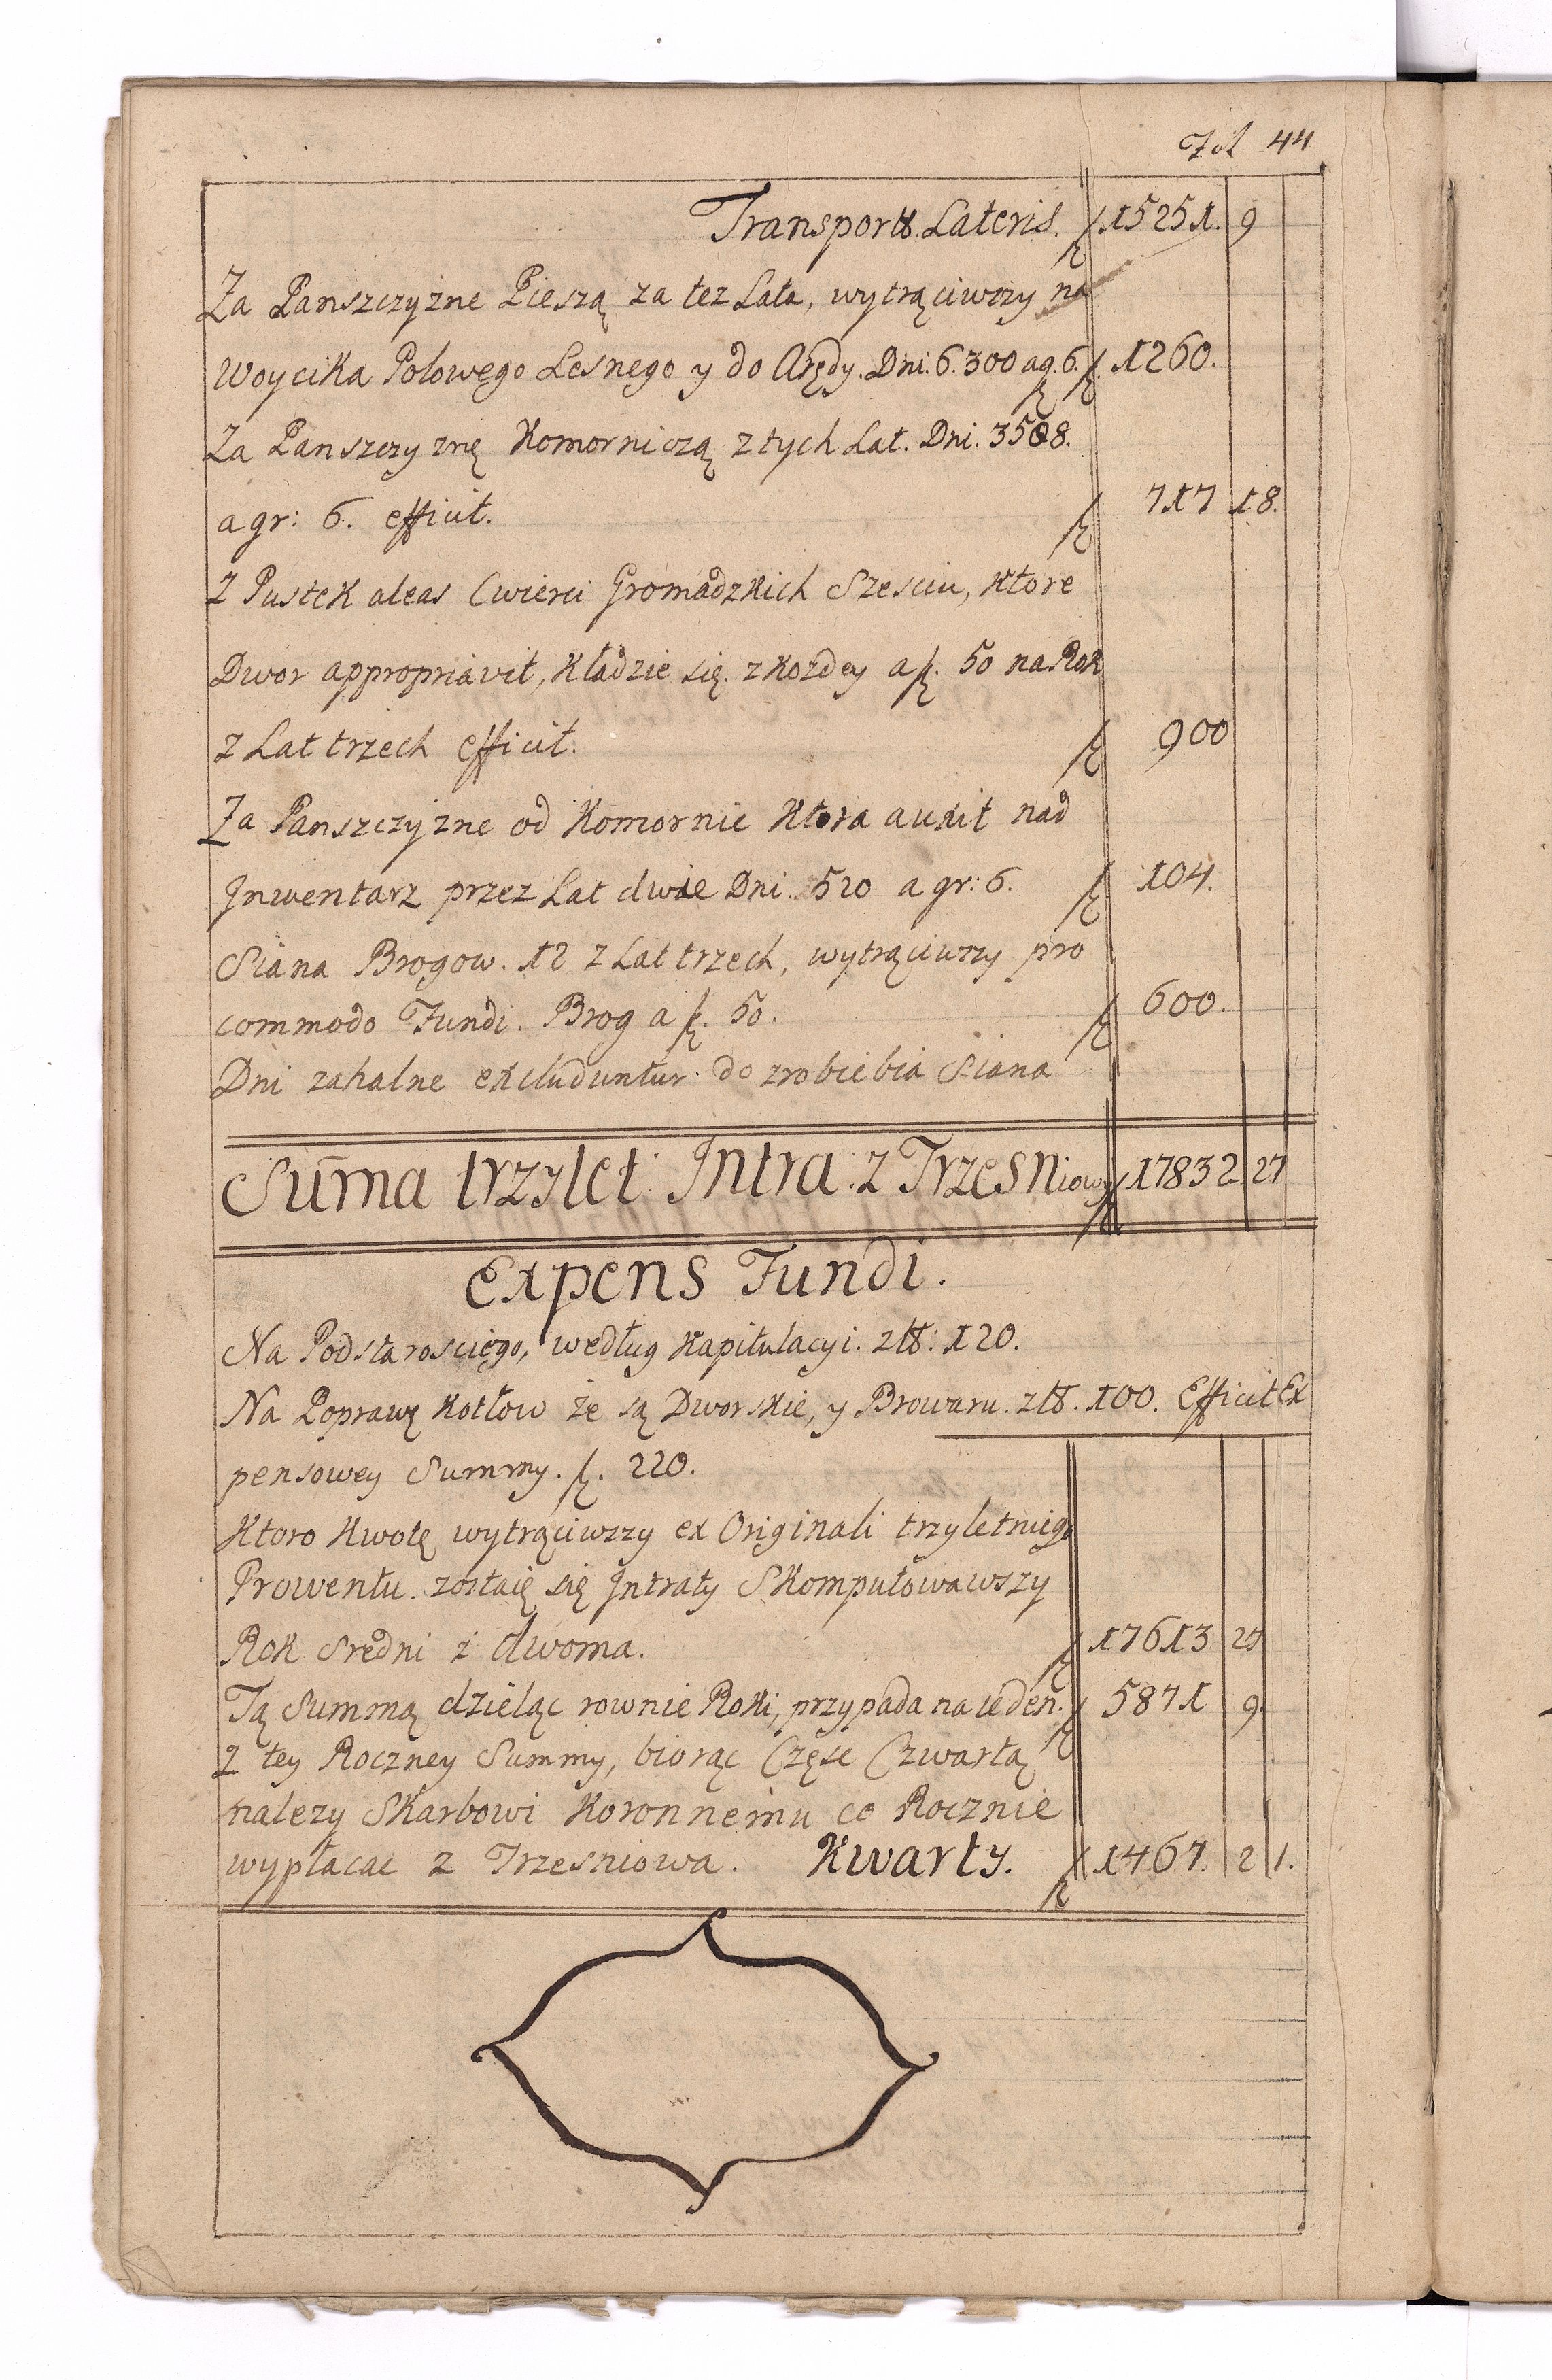 Fol 44
Transport Lateris. 15251. 9
Za Panszczyzne Pieszą za tez Lata, wytrąciwszy na
Woycika Polowego Lesnego y do Arędy. Dni. 6.300 ag. 6. 1260.
Za Panszczyznę Komorniczą z tych Lat. Dni. 3508.
a gr: 6. efficit. 717 18.
Z Pustek aleas Cwierci Gromadzkich Szesciu, Ktore
Dwor appropriavit, Kładzie się. z Kożdey a f. 50 na Rok
z Lat trzech efficit. 900
Za Panszczyzne od Komornic Ktora auxit nad
Jnwentarz przez Lat dwie Dni. 520 a gr: 6. 104.
Siana Brogow. 12 z Lat trzech, wytrąciwszy pro
commodo Fundi. Brog a f. 50. 600.
Dni zahalne excluduntur. do zrobiebia Siana
Sum̄a trzylet: Intra: z Trzesniowy 17832 27
Expens Fundi.
Na Podstarosciego, według Kapitulacyi. złt: 120.
Na Poprawę Kotłow że są Dworskie, y Browaru. złt. 100. Efficit Ex
pensowey Summy. f. 220.
Ktoro Kwotę wytrąciwszy ex Originali trzyletnieg
Prowentu. zostaię się Jntraty Skomputowawszy
Rok sredni z dwoma. 17613 27
Tą Summą dzieląc rownie Roki, przypada na ieden. 5871 9.
Z tey Roczney Summy, biorąc Częsc Czwartą
nalezy Skarbowi Koronnemu co Rocznie
wypłacac z Trzesniowa. Kwarty. 1467. 2 1.